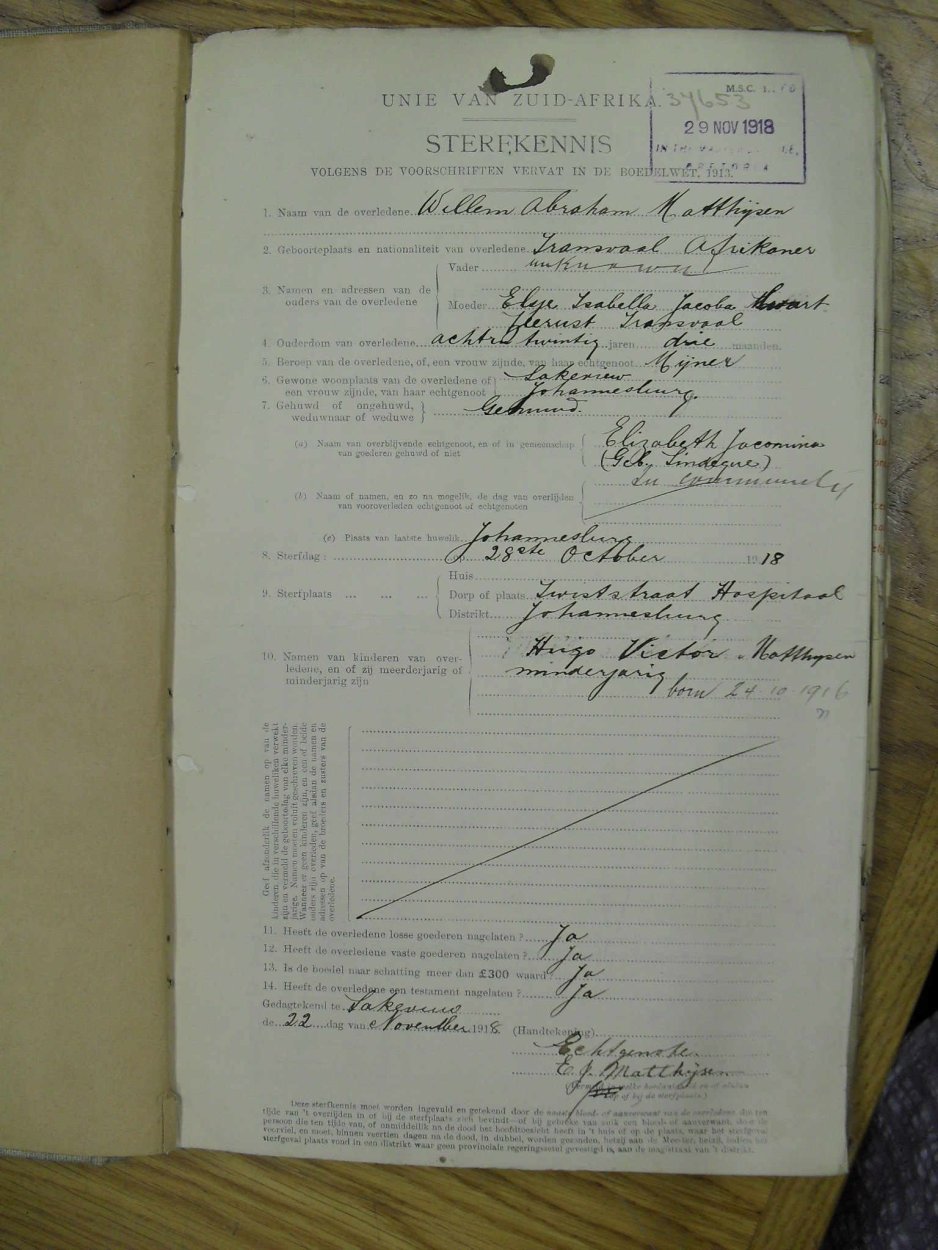 M.S.C.
UNIE VAN ZUID-AFRIKA. 34653
29 NOV 1918
STERFKENNIS
VOLGENS DE VOORSCHRIFTEN VERVAT IN DE BOEDELWET, 1913.
1. Naam van de overledene Willem Abraham Matthijsen
2. Geboorteplaats en nationaliteit van overledene Transvaal Afrikaner
3. Namen en adressen van de ouders van de overledene
Vader unknown
Moeder Elsje Isabella Jacoba
Zeerust Transvaal
4. Ouderdom van overledene achtentwintig jaren drie maanden.
5. Beroep van de overledene, of, een vrouw zijnde, van haar echtgenoot Mijner
6. Gewone woonplaats van de overledene of een vrouw zijnde, van haar echtgenoot
Lakeview
Johannesburg
7. Gehuwd of ongehuwd, weduwnaar of weduwe
Gehuwd.
(a) Naam van overblijvende echtgenoot, en of in gemeenschap van goederen gehuwd of niet
Elizabeth Jacomina
(Geb. Lindeque)
In community
(b) Naam of namen, en zo na mogelik, de dag van overlijden van vooroverleden echtgenoot of echtgenoten
(c) Plaats van laatste huwelik Johannesburg
8. Sterfdag : 28ste October 1918
9. Sterfplaats ... ... ...
Huis
Dorp of plaats Twiststraat Hospitaal
Distrikt Johannesburg
10. Namen van kinderen van overledene, en of zij meerderjarig of minderjarig zijn
Hugo Victor Matthysen
minderjarig
born 24-10-1916
Geef afzonderlik de namen op van de
kinderen die in verschillende huweliken verwekt
zijn en vermeld de geboortedag van elke minder-
jarige. Namen moeten voluit geschreven worden.
Wanneer er geen kinderen zijn, en een of beide
ouders zijn overleden, geef alsdan de namen en
adressen op van de broeders en zusters van de
overledene.
11. Heeft de overledene losse goederen nagelaten ? Ja
12. Heeft de overledene vaste goederen nagelaten ? Ja
13. Is de boedel naar schatting meer dan £300 waard? Ja
14. Heeft de overledene een testament nagelaten ? Ja
Gedagtekend te Lakeview
de 22 dag van November 1918. (Handtekening)
Echtgenote
E. J. Matthijsen
Deze sterfkennis moet worden ingevuld en getekend door de naaste bloed- of aanverwant van de overledene die ten
tijde van 't overlijden in of bij de sterfplaats zich bevindt—of bij gebreke van zulk een bloed- of aanverwant, door de
persoon die ten tijde van, of onmiddellik na de dood het hoofdtoezicht heeft in 't huis of op de plaats, waar het sterfgeval
voorviel, en moet, binnen veertien dagen na de dood, in dubbel, worden gezonden, hetzij aan de Meester, hetzij, indien het
sterfgeval plaats vond in een distrikt waar geen provinciale regeringszetel gevestigd is, aan de magistraat van 't distrikt.